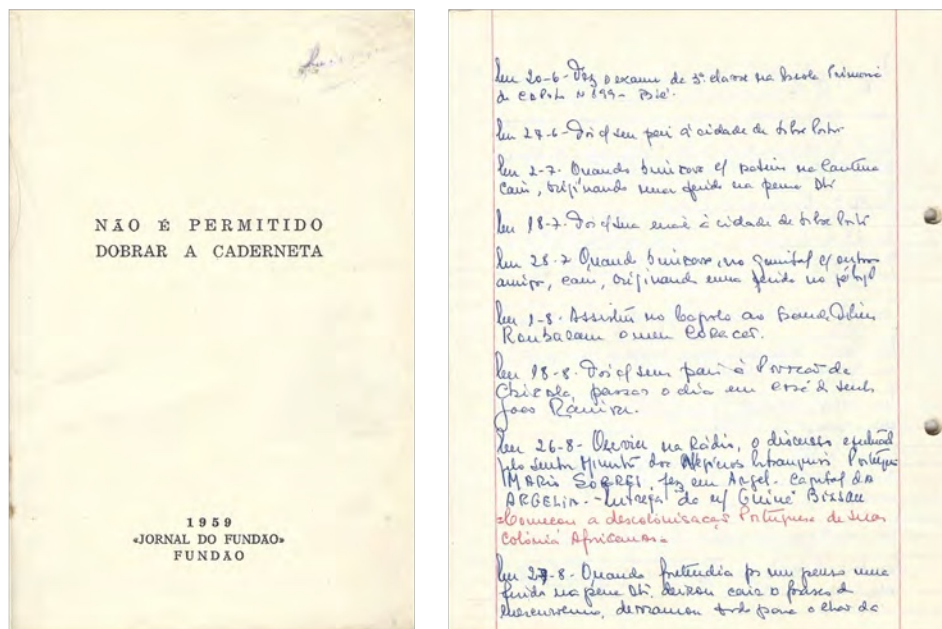 NÃO É PERMITIDO
DOBRAR A CADERNETA
1959
«JORNAL DO FUNDÃO»
FUNDÃO
Em 20-6- Fez o exame da 3ª classe na Escola Primaria
de Nº 699- Bié.
Em 27-6- Foi c/ seu pai à cidade de Silva Porto
Em 2-7. Quando brincava c/ na Cantina
caiu, originando uma ferida na perna Dtª
Em 18-7- Foi c/ sua mãe à cidade de Silva Porto
Em 28-7 Quando brincava, no quintal c/ outro
amigo, caiu, originando uma ferida no
Em 1-8. Assistiu no ao
Roubaram o meu
Em 18-8. Foi c/ seu pai à de
passar o dia em casa do senh
Joao
Em 26-8- na Rádio, o discurso
pelo senhor Ministro dos Negócios Estrangeiros Portugu
MARIO SOARES, fez em Argel. Capital da
ARGELIA.- Entrega da Guiné Bissau
Começou a descolonisação Portuguesa de suas
Colónia Africanas.
Em 27-8- Quando pretendia pôr um penso numa
ferida na perna Dtª, deixou cair o frasco de
mercurcromo, derramou todo para o chão da